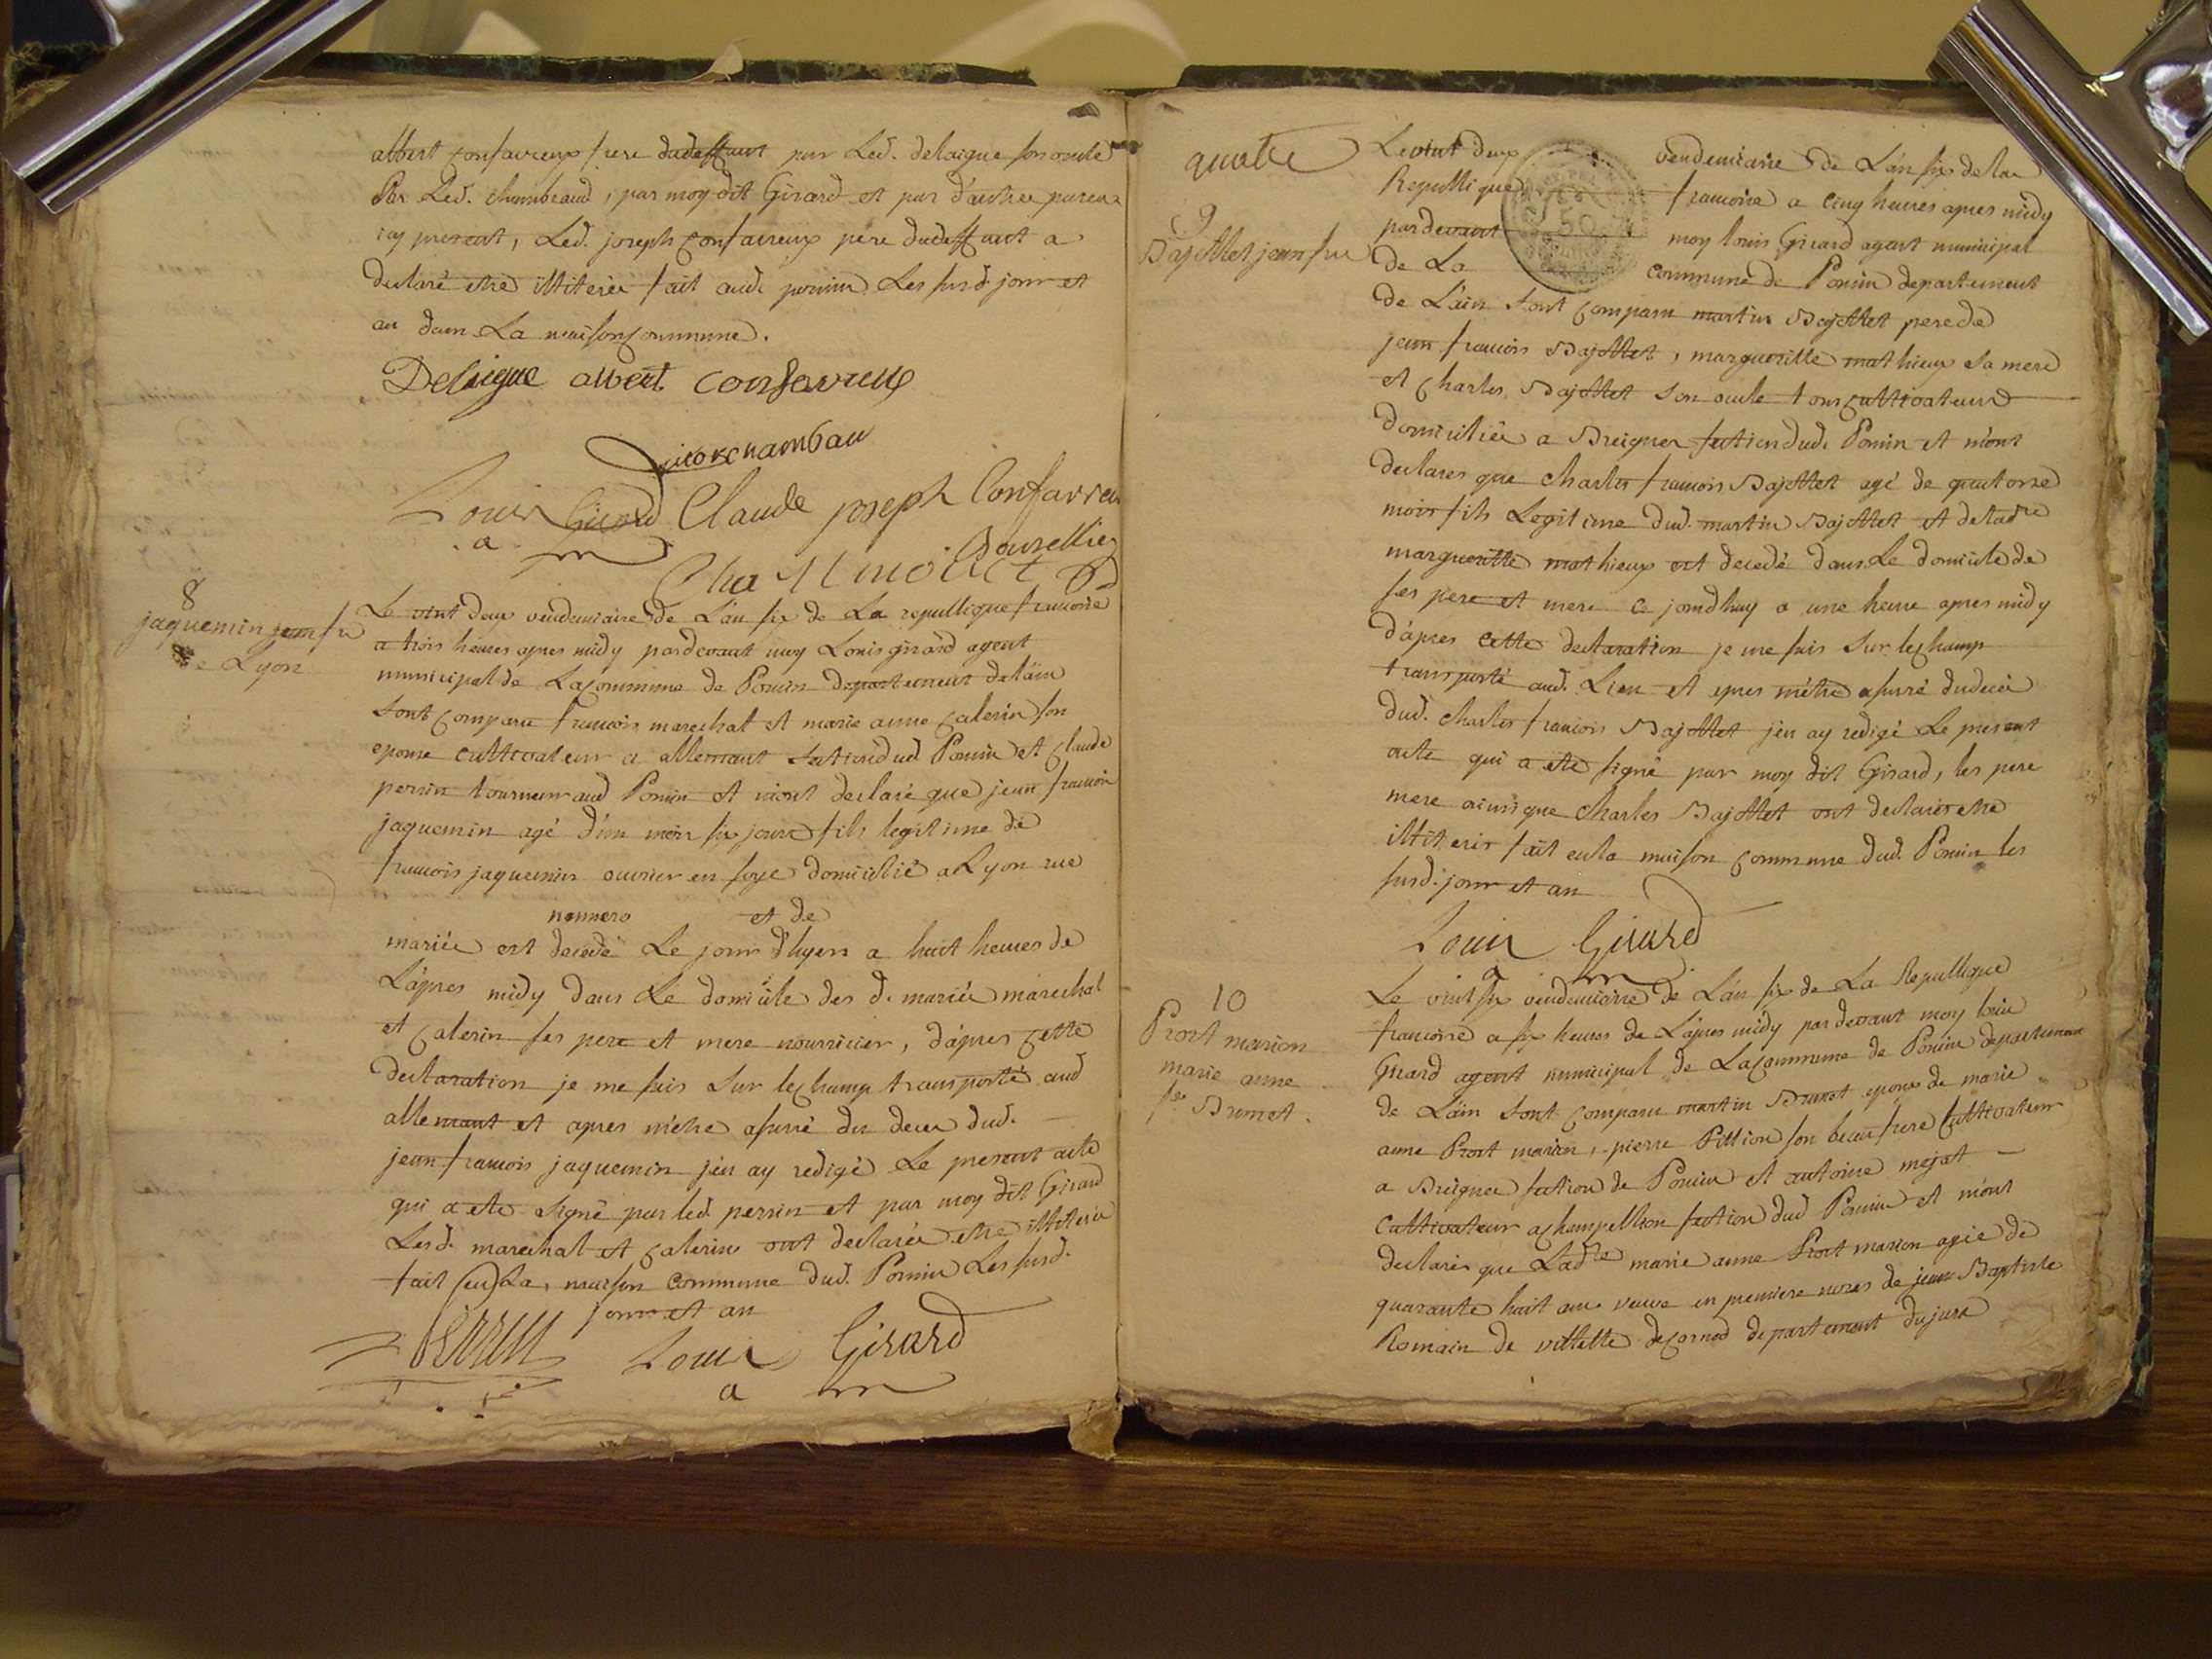 albert Confavreux frere dudeffunt par Led. delaigue son oncle
Par Led. chambeaud, par moy dit Girard et par d'autres parens
icy present, Led. joseph Confavreux pere dudeffunt a
declaré etre illiterée fait aud. poncin Les susd. jour et
an dans La maison Commune.
Delaigue albert Confavreux
chambau
Louis Girard Claude joseph Confavreu
a m Bourellier
8
jaquemin jean fr
de Lyon
Le vint deux vendemiaire de L'an six de La republique francoise
a trois heures apres midy pardevant moy Louis girard agent
municipal de La Commune de Poncin departement de lain
sont Comparu francois marechal et marie anne Calerin son
epouse cultivateur a allemant section dud Poncin et Claude
perrin tourneur aud Poncin et m'ont declaré que jean francois
jaquemin agé d'un mois six jours fils legitime de
francois jaquemin ouvrier en soye domicilié a Lyon rue
nommero et de
mariée est decedé Le jour d'hyers a huit heures de
L'apres midy dans Le domicile des d. mariée marechal
et Calerin ses pere et mere nourricier, d'apres Cette
declaration je me suis sur le Champ transporté aud
allemant et apres m'etre assuré du deces dud.
jean francois jaquemin j'en ay redigé Le present acte
qui a ete signé par led. perrin et par moy dit Girard
Lesd. marechal et Calerin ont declarée etre illiterée
fait en La maison Commune dud. Poncin Les susd.
jour et an
Perrin Louis Girard
a m
quatre
9
Bajollet jean fr
Le vint deux vendemiaire de L'an six de la
Republique francoise a Cinq heures apres midy
pardevant moy louis Girard agent municipal
de La Commune de Poncin departement
de L'ain sont Comparu martin Bajollet pere de
jean francois Bajollet, margueritte mathieux sa mere
et Charles Bajollet son oncle tous Cultivateurs
domiciliée a Breignes section dud. Poncin et m'ont
declares que Charles francois Bajollet agé de quatorze
mois fils Legitime dud. martin Bajollet et de ladte
margueritte mathieux est decedé dans Le domicile de
ses pere et mere ce jourdhuy a une heure apres midy
d'apres cette declaration je me suis sur le Champ
transporté aud. Lieu et apres m'etre assuré dudecée
dud. Charles francois Bajollet j'en ay redigé Le present
acte qui a ete signé par moy dit Girard, les pere
mere ainsi que Charles Bajollet ont declarés etre
illiteris fait en la maison Commune dud. Poncin les
susd. jour et an
Louis Girard
a m
10
Prost marion
marie anne
fe Brunet.
Le vint six vendemiaire de L'an six de La Republique
francoise a six heures de L'apres midy pardevant moy louis
Girard agent municipal de La Commune de Poncin departement
de L'ain sont Comparu martin Brunet epoux de marie
anne Prost marion, pierre Pittion son beau frere Cultivateur
a Breignes section de Poncin et antoine mejat
Cultivateur a Champeillon section dud Poncin et m'ont
declarés que Ladte marie anne Prost marion agée de
quarante huit ans veuve en premiere noces de jean Baptiste
Romain de villette de Cornod departement du jura